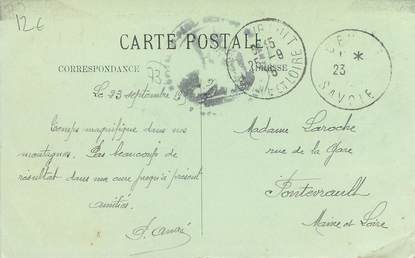 12€
CARTE POSTALE
CORRESPONDANCE
ADRESSE
Le 23 septembre
Temps magnifique dans nos
montagnes. Pas beaucoup de
résultat dans ma cure jusqu'à présent
amitiés
Madame Laroche
rue de la Gare
Fontevrault
Maine et Loire
23
SAVOIE